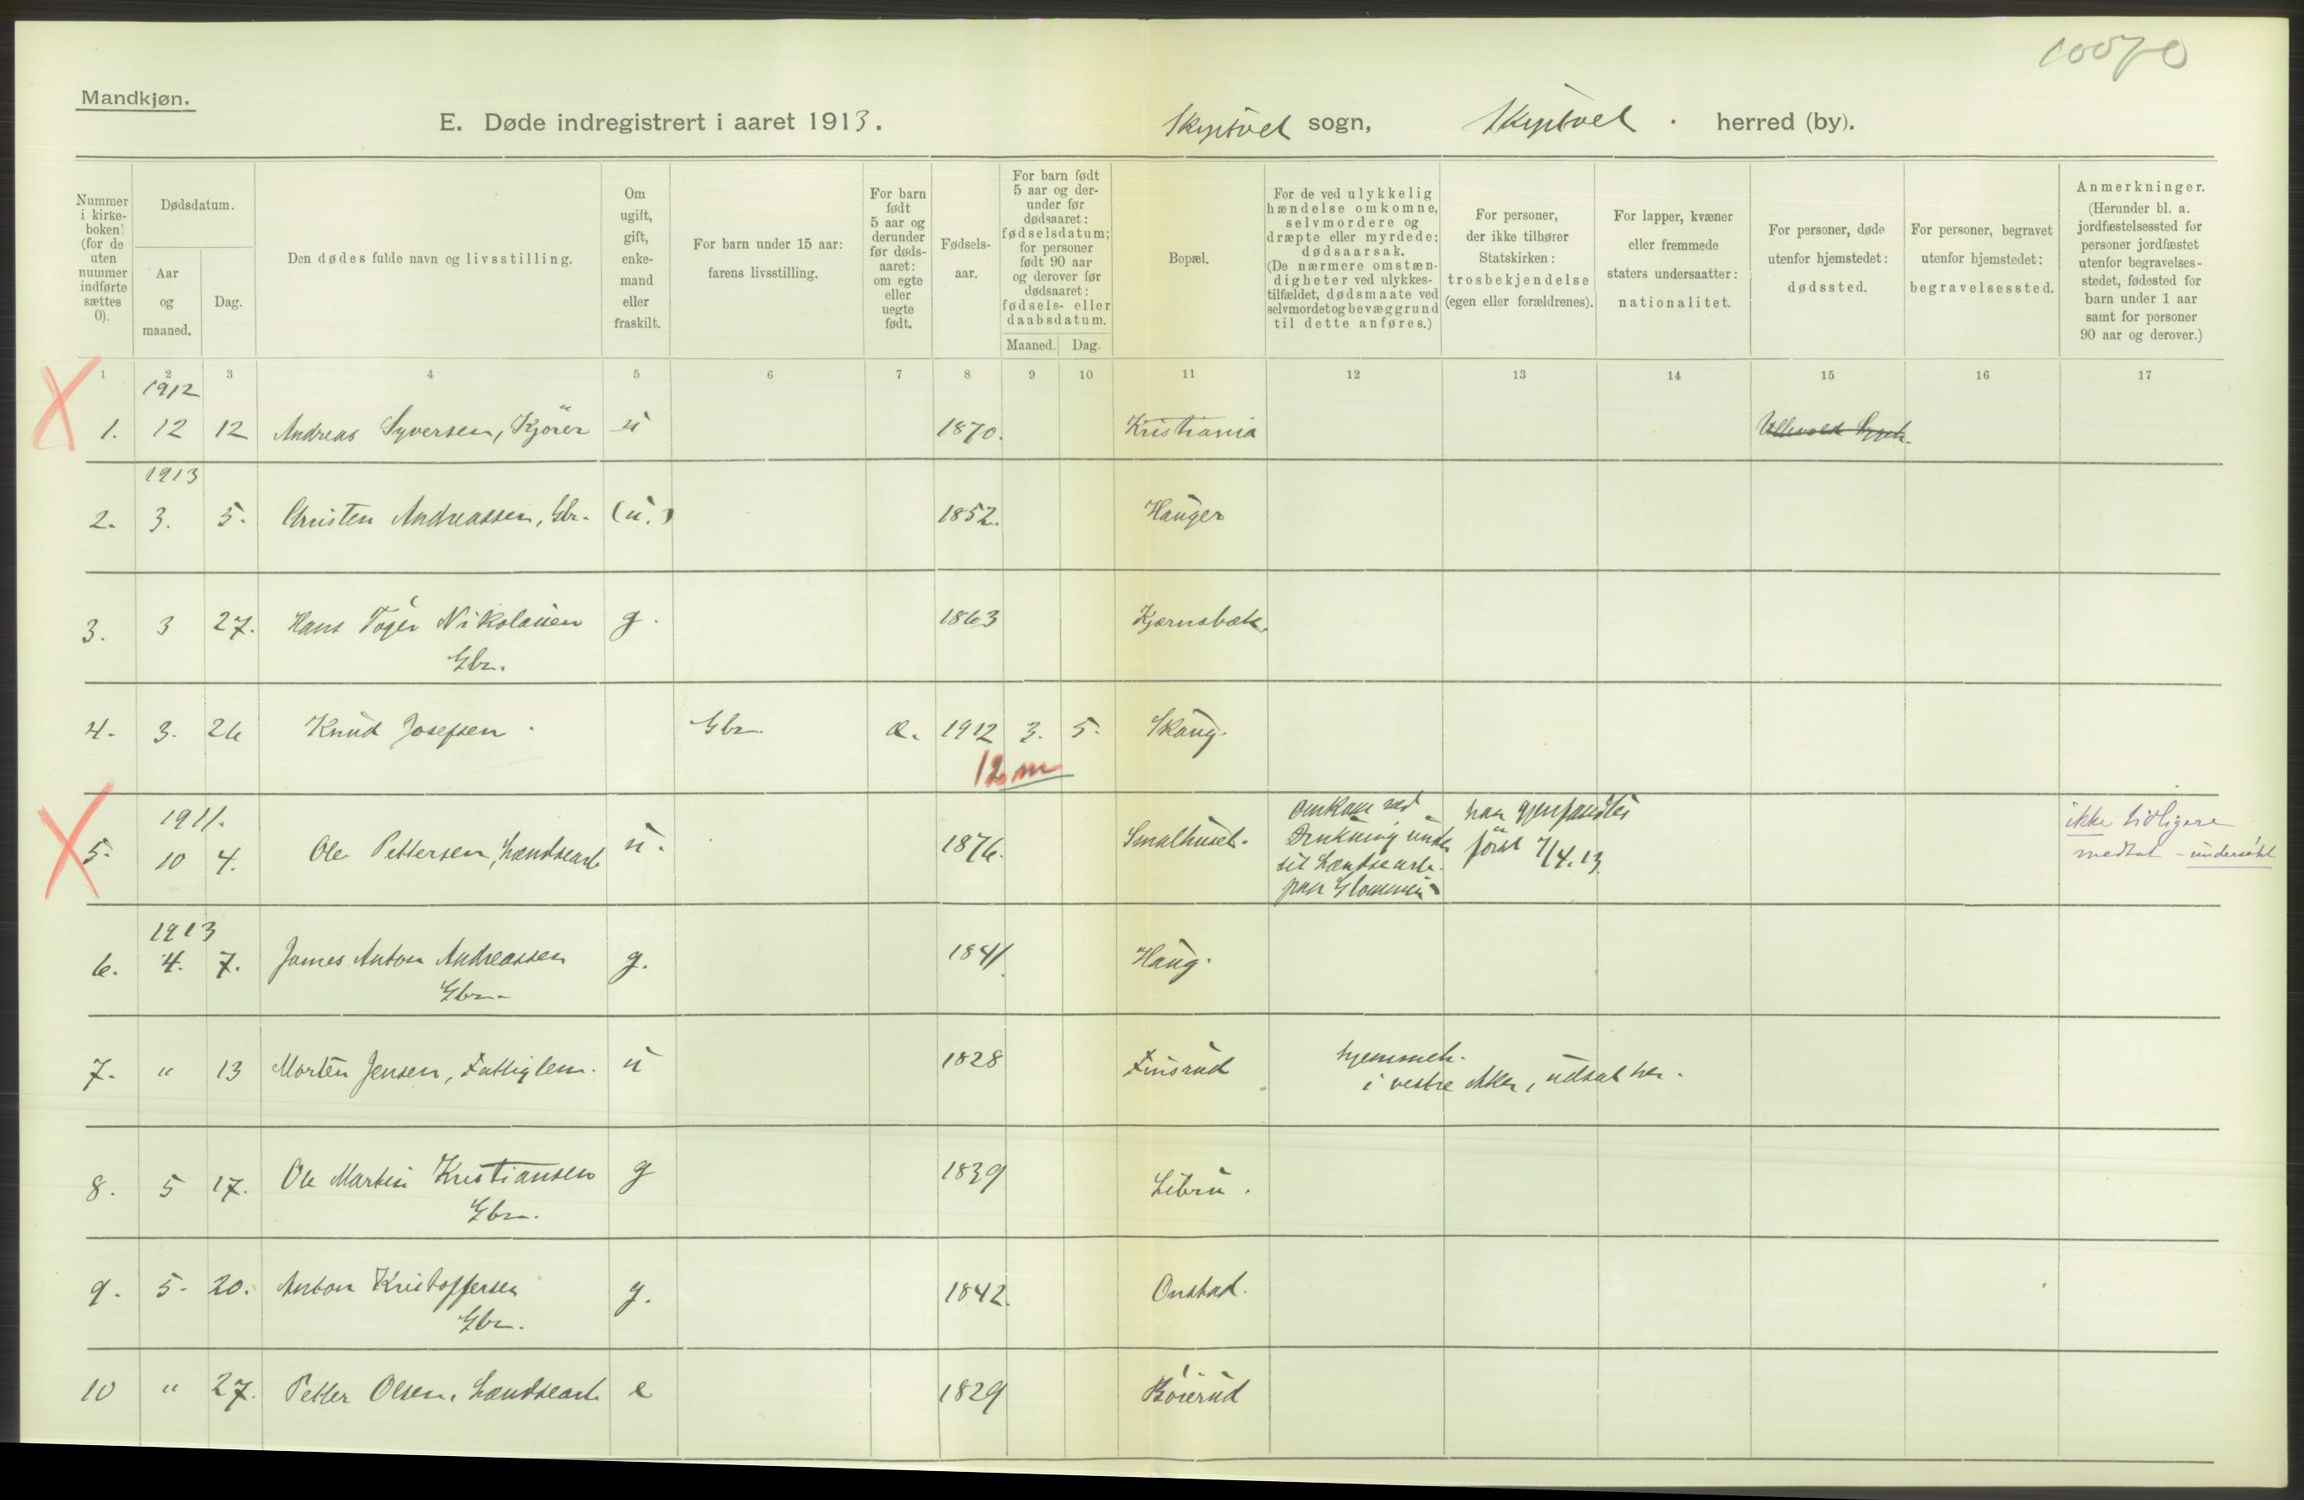 10070
Mandkjøn.
E. Døde indregistrert i aaret 1913. Skiptvet sogn, Skiptvet . herred (by).
Nummer i kirke-boken (for de uten nummer indførte sættes 0).
Dødsdatum.
Aar og maaned.
Dag.
Den dødes fulde navn og livsstilling.
Om ugift, gift, enke-mand eller fraskilt.
For barn under 15 aar: farens livsstilling.
For barn født 5 aar og derunder før døds-aaret: om egte eller uegte født.
Fødsels-aar.
For barn født 5 aar og der-under før dødsaaret: fødselsdatum; for personer født 90 aar og derover før dødsaaret: fødsels- eller daabsdatum.
Maaned. Dag.
Bopæl.
For de ved ulykkelig hændelse omkomne, selvmordere og dræpte eller myrdede: dødsaarsak. (De nærmere omstæn-digheter ved ulykkes-tilfældet, dødsmaate ved selvmordet og bevæggrund til dette anføres.)
For personer, der ikke tilhører Statskirken: trosbekjendelse (egen eller forældrenes).
For lapper, kvæner eller fremmede staters undersaatter: nationalitet.
For personer, døde utenfor hjemstedet: dødssted.
For personer, begravet utenfor hjemstedet: begravelsessted.
Anmerkninger. (Herunder bl. a. jordfæstelsessted for personer jordfæstet utenfor begravelses-stedet, fødested for barn under 1 aar samt for personer 90 aar og derover.)
1 2 3 4 5 6 7 8 9 10 11 12 13 14 15 16 17
1912
1. 12 12 Andreas Syversen, Kjörer u 1870. Kristiania Ullevold Sygeh.
1913
2. 3. 5. Christen Andreassen, Gbr. (u.) 1852. Hauger
3. 3 27. Hans Toger Nikolaisen g. 1863 Kjærnsbæk.
Gbr.
4. 3. 26 Knud Josefsen Gbr. e. 1912 3. 5. Skaug.
12 m
1911.
5. 10 4. Ole Pettersen, Lændsearb u. 1876. Smalhuset.
Omkom ved
Drukning under
sit Lændsearb.
paa Glommen.
han gjenfandtes
först 7/4.13.
ikke tidligere
medtat - undersökt
1913
6. 4. 7. James Anton Andreassen g. 1841. Haug.
Gbr.
7. " 13 Morten Jensen, Fattiglem. u 1828 Finsrud
hjemmeh.
i vestre Aker, udsat her.
8. 5 17. Ole Martin Kristiansen g 1839 Libru.
Gbr.
9. 5. 20. Anton Kristoffersen g. 1842. Onstad.
Gbr.
10 " 27. Petter Olsen, Lændsearb e 1829 Böierud